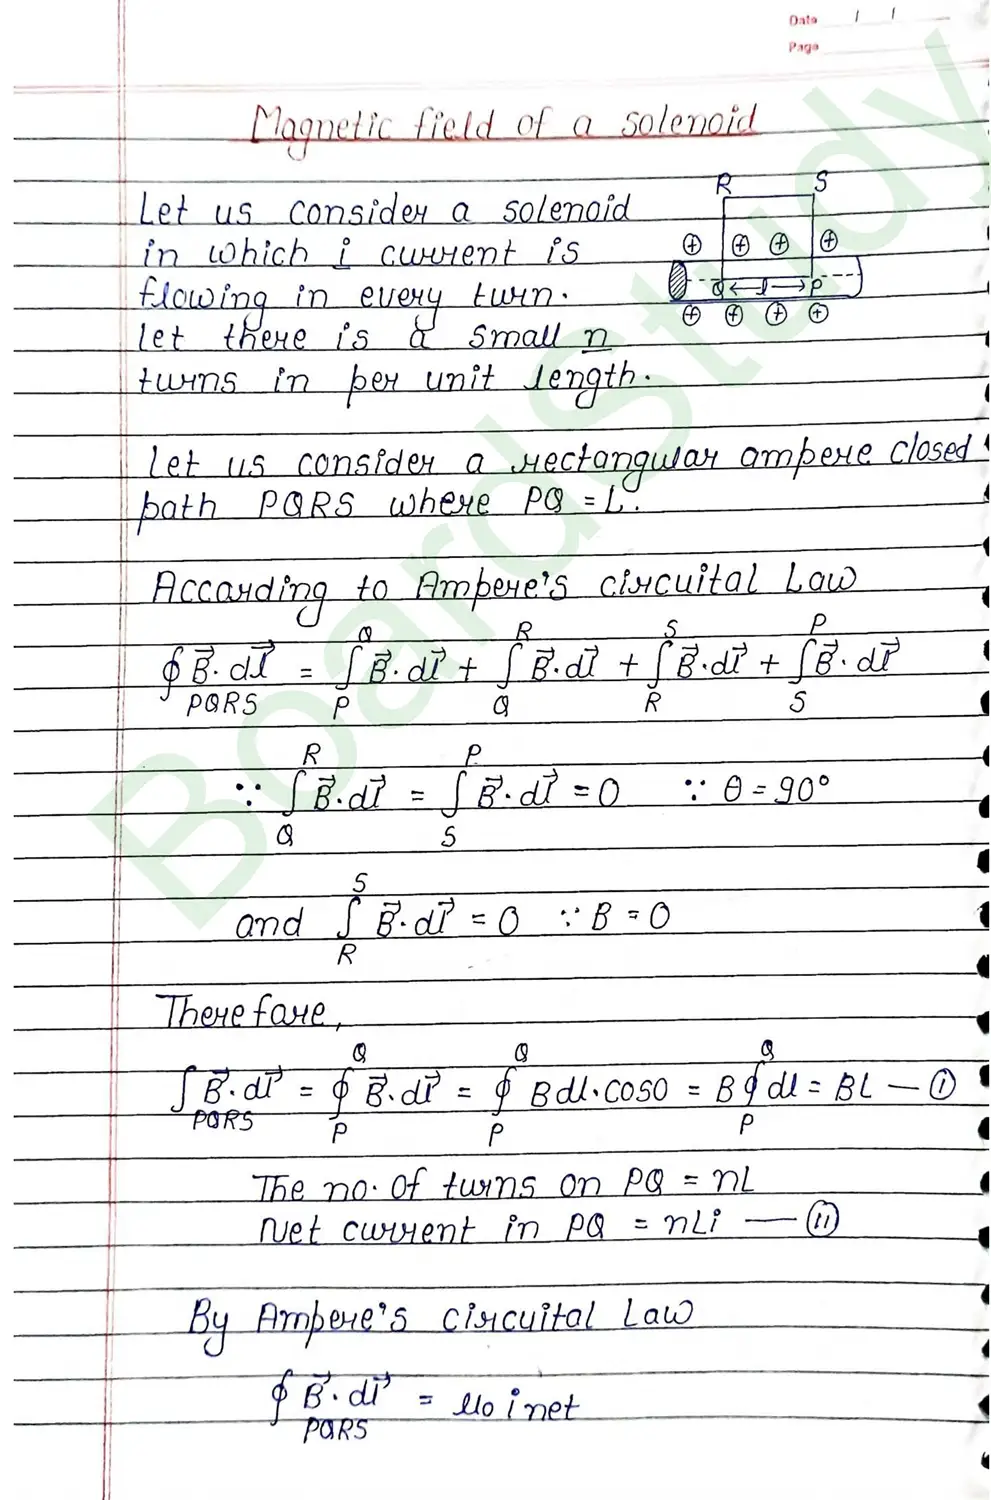 Date / /
Page
Magnetic field of a solenoid
Let us consider a solenoid
in which i current is
flowing in every turn.
let there is a small n
turns in per unit length.
R S
⊕ ⊕ ⊕ ⊕
Q ←l→ P
⊕ ⊕ ⊕ ⊕
Let us consider a rectangular ampere closed
path PQRS where PQ = L.
According to Ampere's circuital Law
∮PQRS B⃗·dl⃗ = ∫P^Q B⃗·dl⃗ + ∫Q^R B⃗·dl⃗ + ∫R^S B⃗·dl⃗ + ∫S^P B⃗·dl⃗
∵ ∫Q^R B⃗·dl⃗ = ∫S^P B⃗·dl⃗ = 0 ∵ θ = 90°
and ∫R^S B⃗·dl⃗ = 0 ∵ B = 0
Therefore,
∫PQRS B⃗·dl⃗ = ∮P^Q B⃗·dl⃗ = ∮P^Q Bdl·cos0 = B∮P^Q dl = BL — (i)
The no. of turns on PQ = nL
Net current in PQ = nLi — (ii)
By Ampere's circuital Law
∮PQRS B⃗·dl⃗ = μ0 i net
BoardStudy